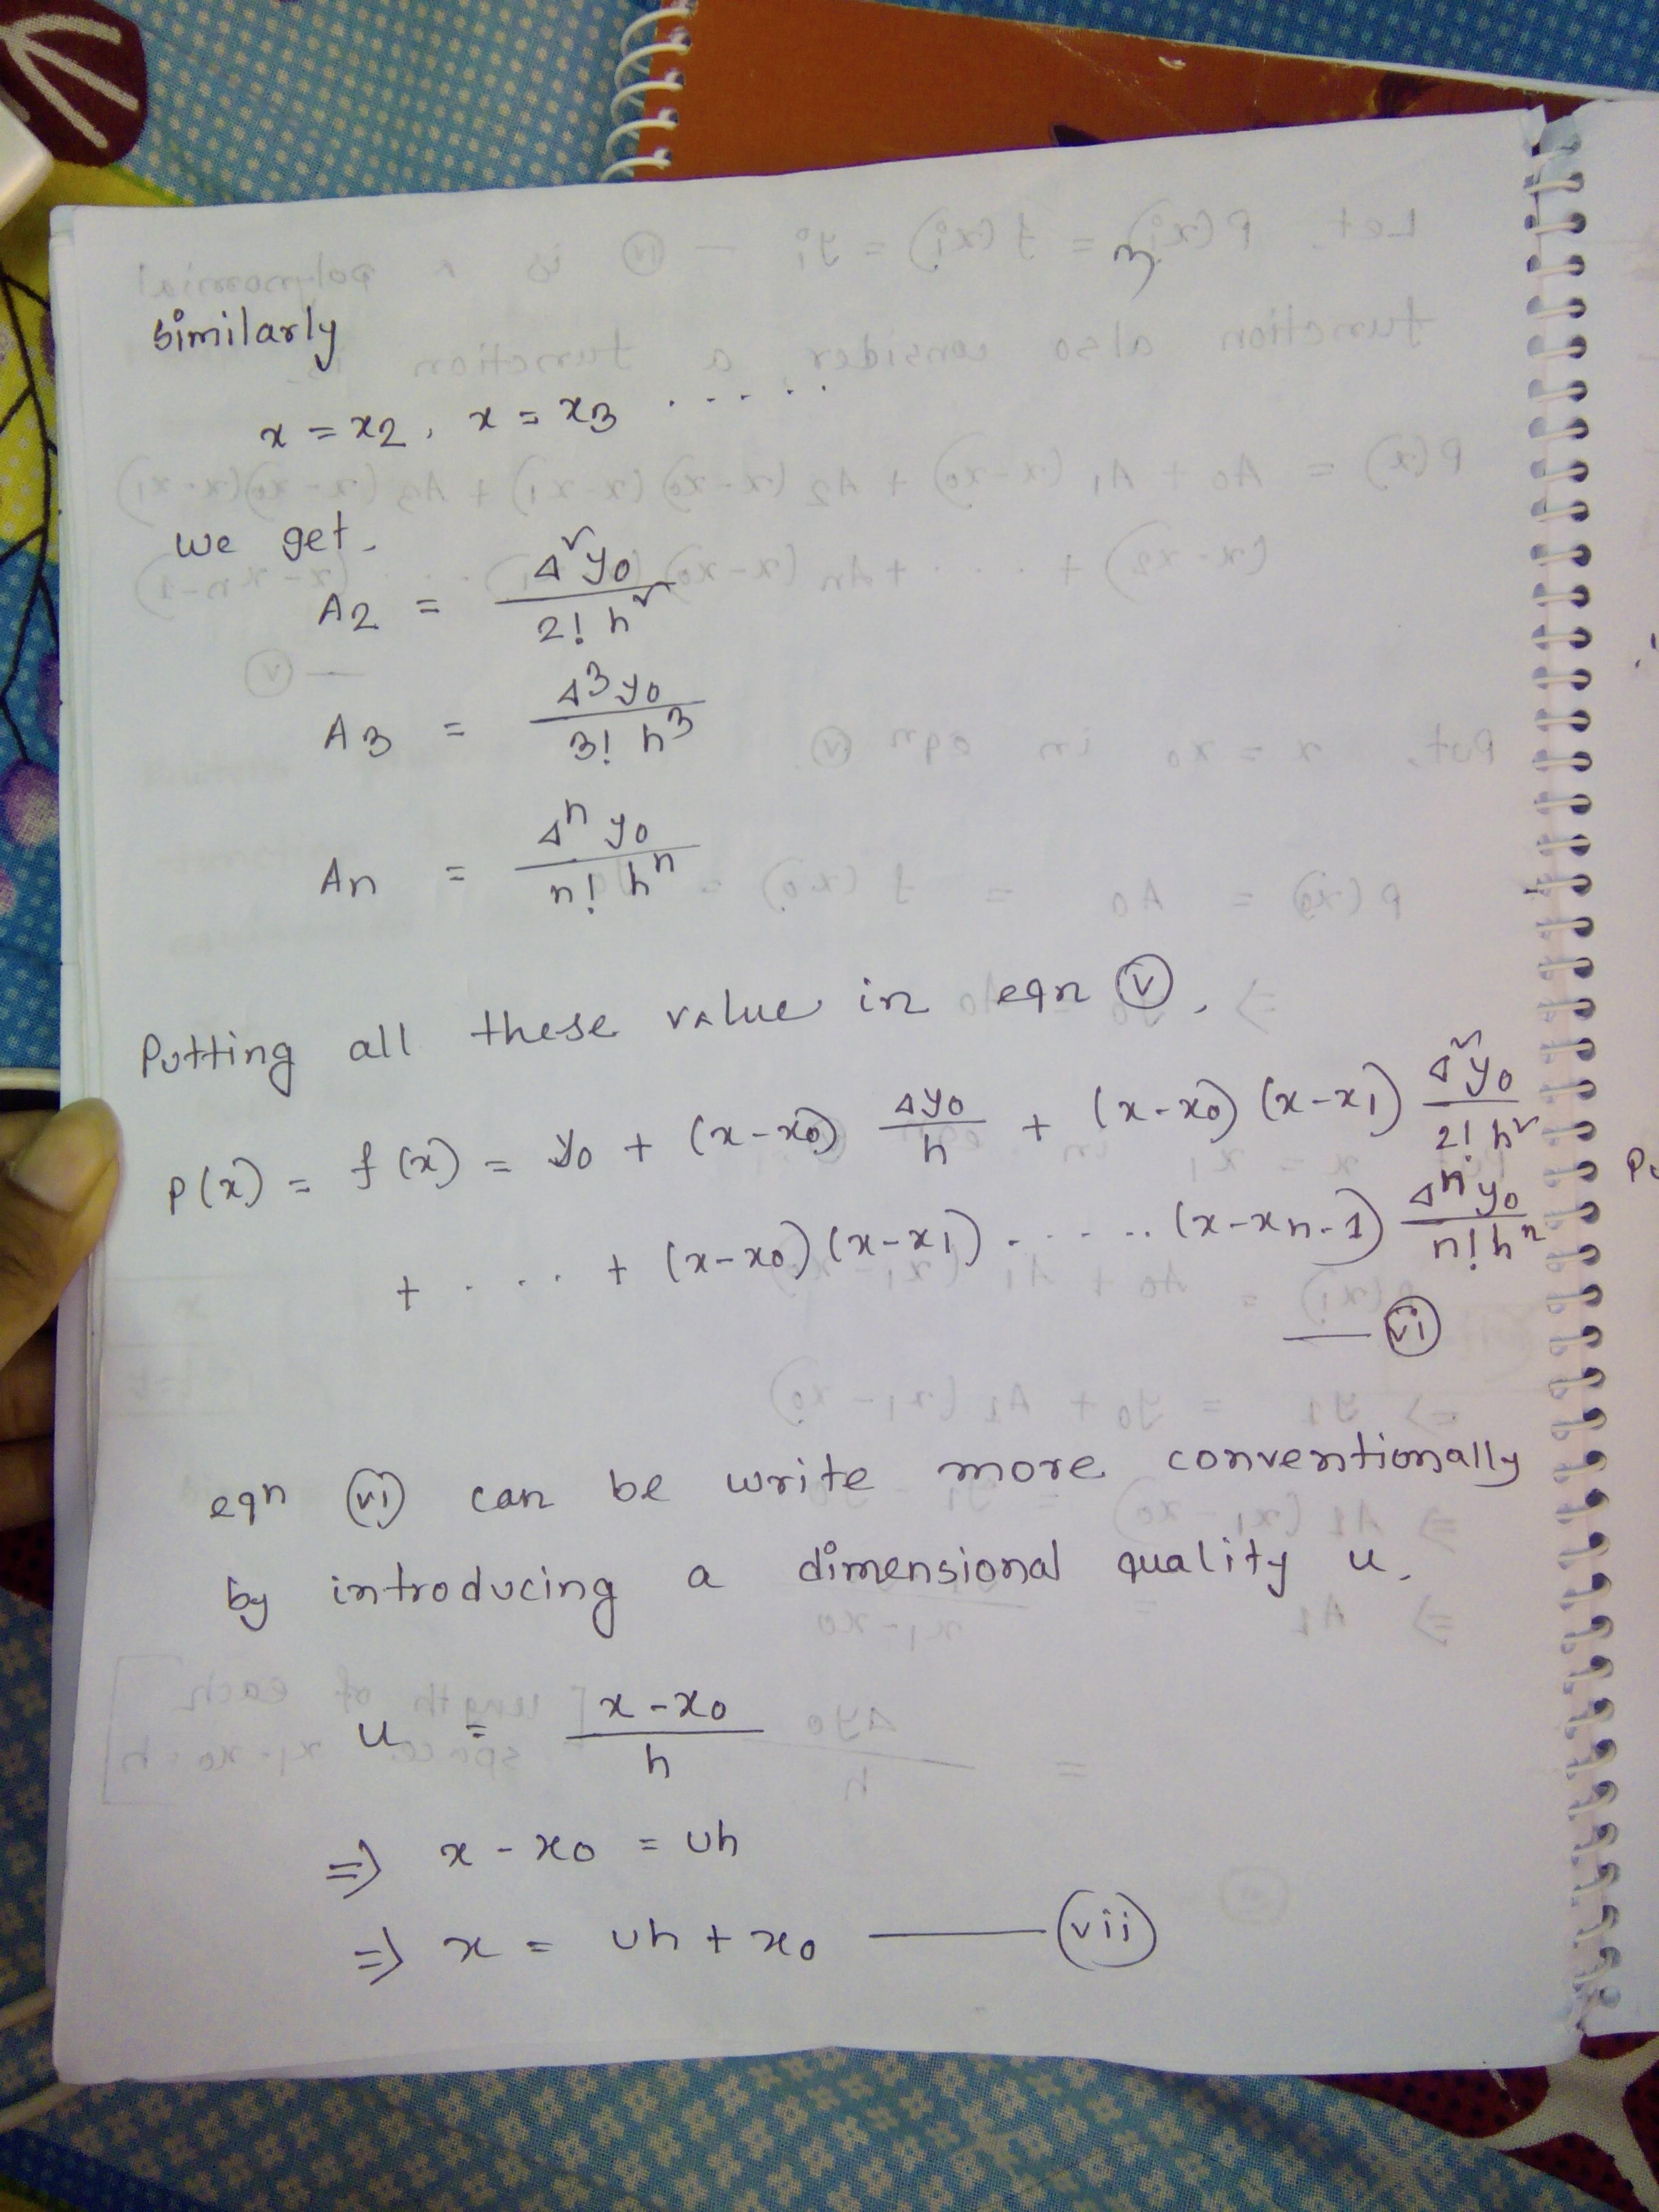 3
Similarly
x = x2, x = x3 .....
we get.
A2 = Δ²y0 / 2! h²
A3 = Δ³y0 / 3! h³
An = Δⁿy0 / n! hⁿ
Putting all these value in eqn (v),
P(x) = f(x) = y0 + (x-x0) Δy0 / h + (x-x0) (x-x1) Δ²y0 / 2! h²
+ .... + (x-x0) (x-x1) ...... (x-xn-1) Δⁿy0 / n! hⁿ
— (vi)
eqn (vi) can be write more conventionally
by introducing a dimensional quality u.
u = x-x0 / h
⇒ x - x0 = uh
⇒ x = uh + x0 — (vii)